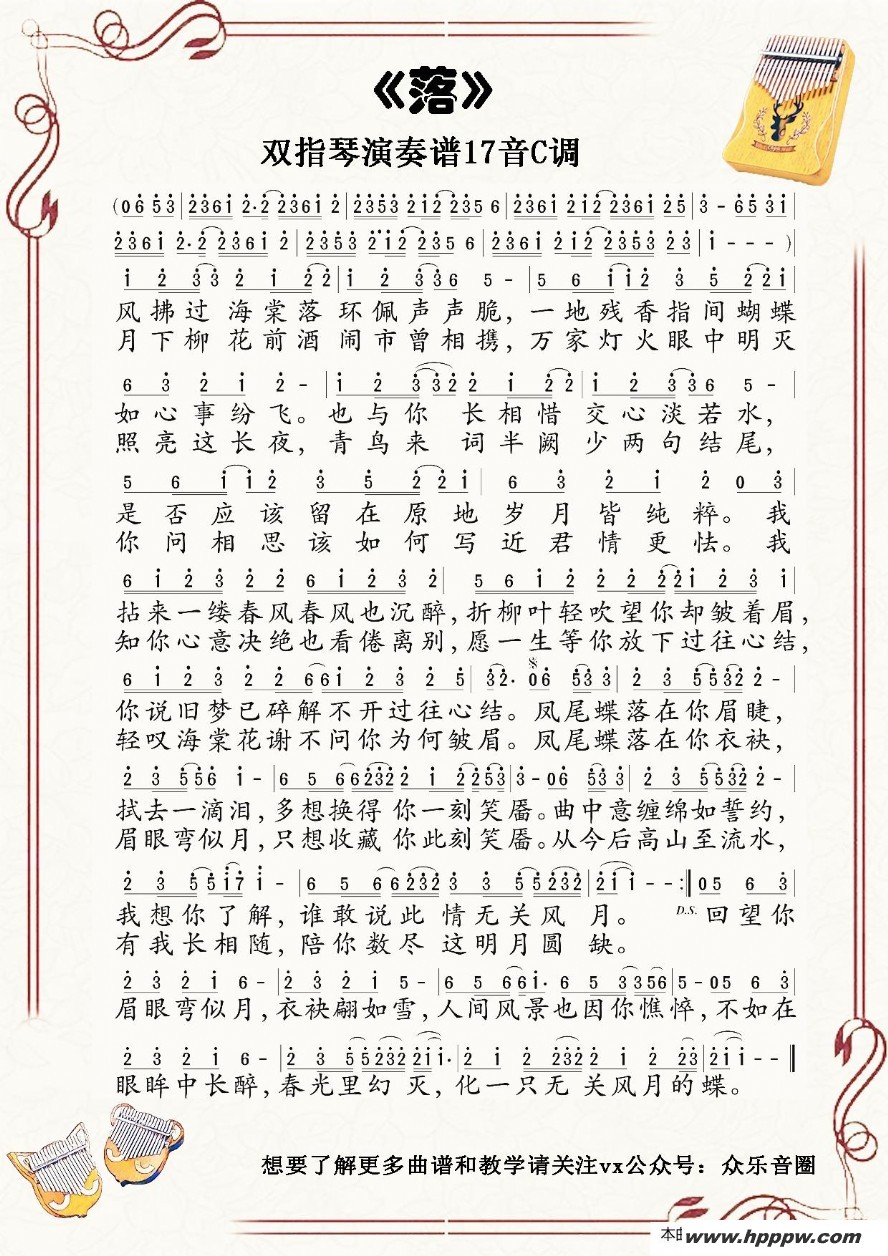 《落》
双指琴演奏谱17音C调
(06 5 3|2361 2·2 2361 2|2353 212 235 6|2361 212 2361 25|3 - 65 31|
2361 2·2 2361 2|2353 212 235 6|2361 212 2353 23|1 - - -)
1 2 33 2 1 22|1 2 336 5 -|5 6 112 3 5 221|
风拂过 海棠落 环佩声声脆，一地残香指间蝴蝶
月下柳 花前酒 闹市曾相携，万家灯火眼中明灭
6 3 2 1 2 -|1 2 332 2 1 22|1 2 336 5 -|
如心事纷飞。也与你 长相惜 交心淡若水，
照亮这长夜，青鸟来 词半阙 少两句结尾，
5 6 112 3 5 221|6 3 2 1 2 0 3|
是否应该留在原地岁月皆纯粹。我
你问相思该如何写近君情更怯。我
6 1 2 3 2 2 6 1 2 3 2|5 6 1 2 2 2 221 2 3 1|
拈来一缕春风春风也沉醉，折柳叶轻吹望你却皱着眉，
知你心意决绝也看倦离别，愿一生等你放下过往心结，
6 1 2 3 2 2 661 2 3 2 5|32· 06 53 3|2 3 5532 2 -|
你说旧梦已碎解不开过往心结。凤尾蝶落在你眉睫，
轻叹海棠花谢不问你为何皱眉。凤尾蝶落在你衣袂，
2 3 556 1 -|6 5 66232 2 1 2253|3 - 06 53 3|2 3 5532 2 -|
拭去一滴泪，多想换得 你一刻笑靥。曲中意缠绵如誓约，
眉眼弯似月，只想收藏 你此刻笑靥。从今后高山至流水，
2 3 5517 1 -|6 5 66232 3 3 55532|211 - -:‖05 6 3|
我想你了解，谁敢说此 情无关风 月。 D.S. 回望你
有我长相随，陪你数尽 这明月圆 缺。
2 3 2 1 6 -|2 3 2 1 5 -|6 5 661· 6 5 3356|5 - 05 6 3|
眉眼弯似月，衣袂翩如雪，人间风景也因你憔悴，不如在
2 3 2 1 6 -|2 3 55232 211·|2 1 2 55322 1 2 23|211 - -‖
眼眸中长醉，春光里幻 灭，化一只无 关风月的蝶。
想要了解更多曲谱和教学请关注vx公众号：众乐音圈
www.hpppw.com